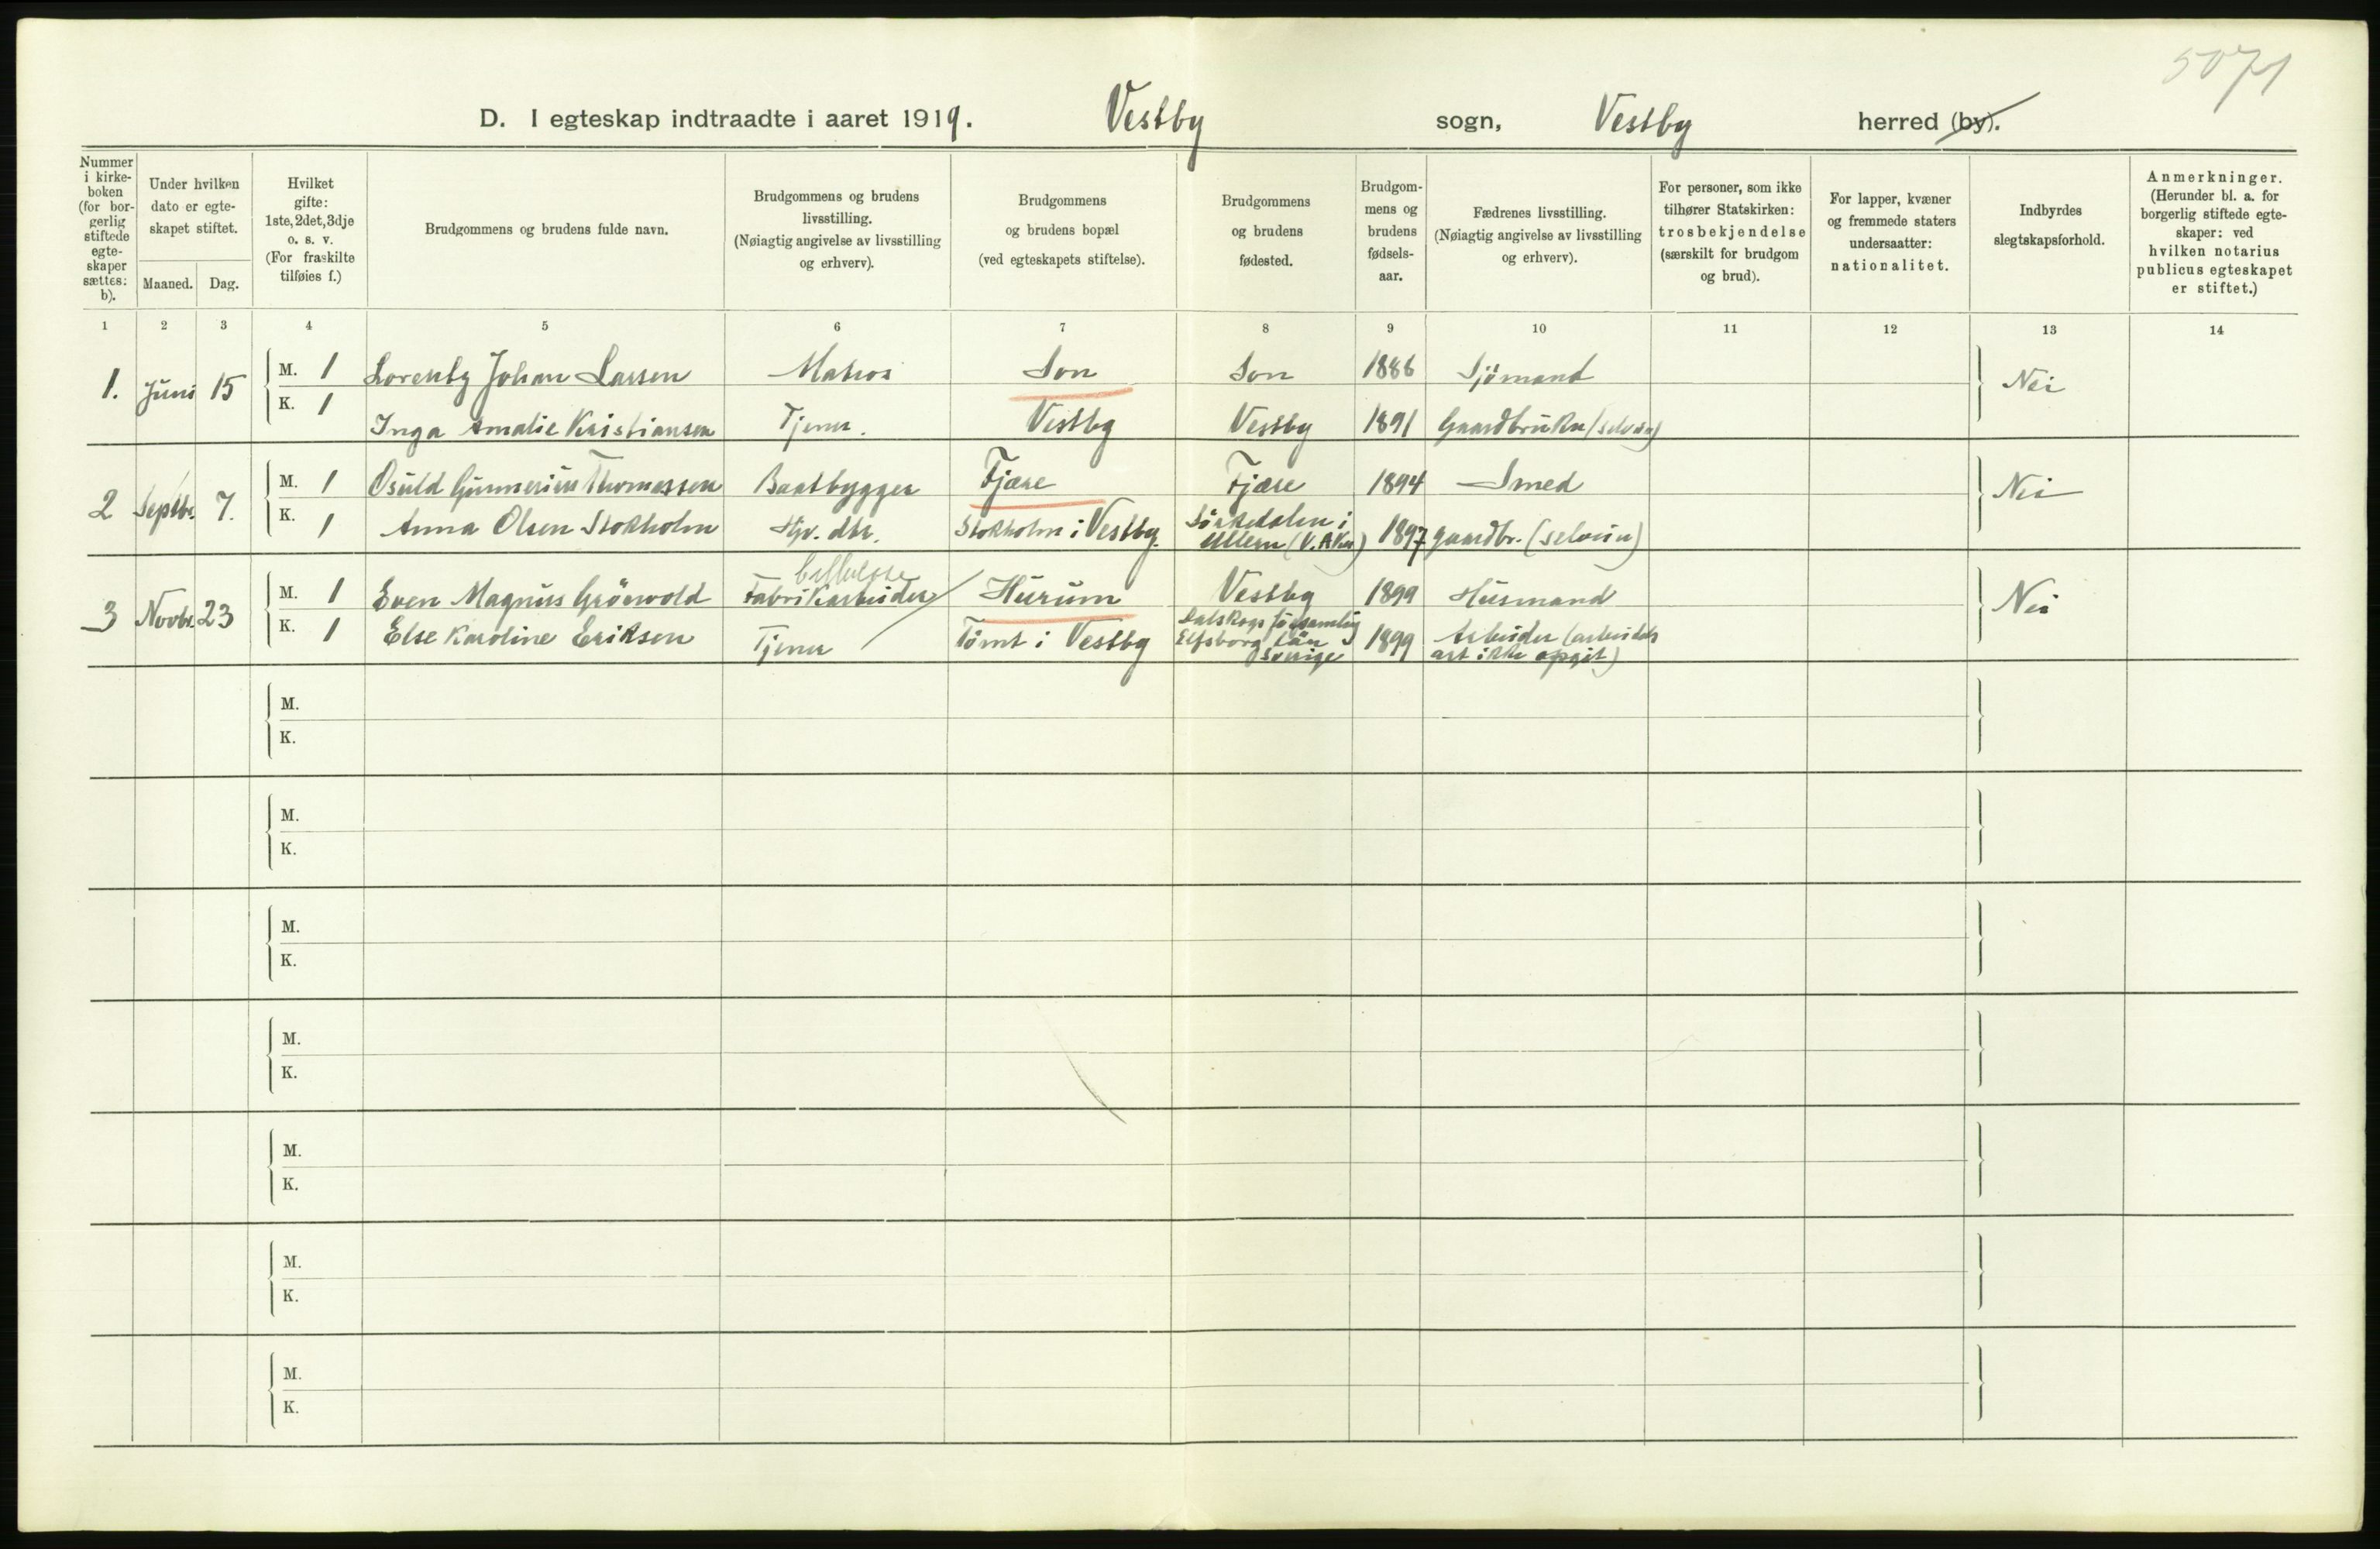 5071
D. I egteskap indtraadte i aaret 1919. Vestby sogn, Vestby herred (by).
Nummer i kirke-boken (for bor-gerlig stiftede egte-skaper sættes: b).
Under hvilken dato er egte-skapet stiftet.
Maaned. Dag.
Hvilket gifte: 1ste, 2det, 3dje o. s. v. (For fraskilte tilføies f.)
Brudgommens og brudens fulde navn.
Brudgommens og brudens livsstilling. (Nøiagtig angivelse av livsstilling og erhverv).
Brudgommens og brudens bopæl (ved egteskapets stiftelse).
Brudgommens og brudens fødested.
Brudgom-mens og brudens fødsels-aar.
Fædrenes livsstilling. (Nøiagtig angivelse av livsstilling og erhverv).
For personer, som ikke tilhører Statskirken: trosbekjendelse (særskilt for brudgom og brud).
For lapper, kvæner og fremmede staters undersaatter: nationalitet.
Indbyrdes slegtskapsforhold.
Anmerkninger. (Herunder bl. a. for borgerlig stiftede egte-skaper: ved hvilken notarius publicus egteskapet er stiftet.)
1 2 3 4 5 6 7 8 9 10 11 12 13 14
1. Juni 15 M. 1 Lorentz Johan Larsen Matros Son Son 1886 Sjömand Nei
K. 1 Inga Amalie Kristiansen Tjener. Vestby Vestby 1891 Gaardbruker (selveier)
2 Septbr. 7. M. 1 Osuld Gunnerius Thomassen Baatbygger Fjære Fjære 1894 Smed Nei
K. 1 Anna Olsen Stokholm Hjv. dtr. Stokholm i Vestby Sörkedalen i
Ullern (V. Aker) 1897 gaardbr. (selveier)
3 Novbr. 23 M. 1 Even Magnus Grönvold Fabrikarbeider Hurum Vestby 1899 Husmand Nei
cellulose
K. 1 Else Karoline Eriksen Tjener Tömt i Vestby Dalskogs församling
Elfsborg Län
Sverige 1899 Arbeider (arbeidets
art ikke opgit)
M.
K.
M.
K.
M.
K.
M.
K.
M.
K.
M.
K.
M.
K.